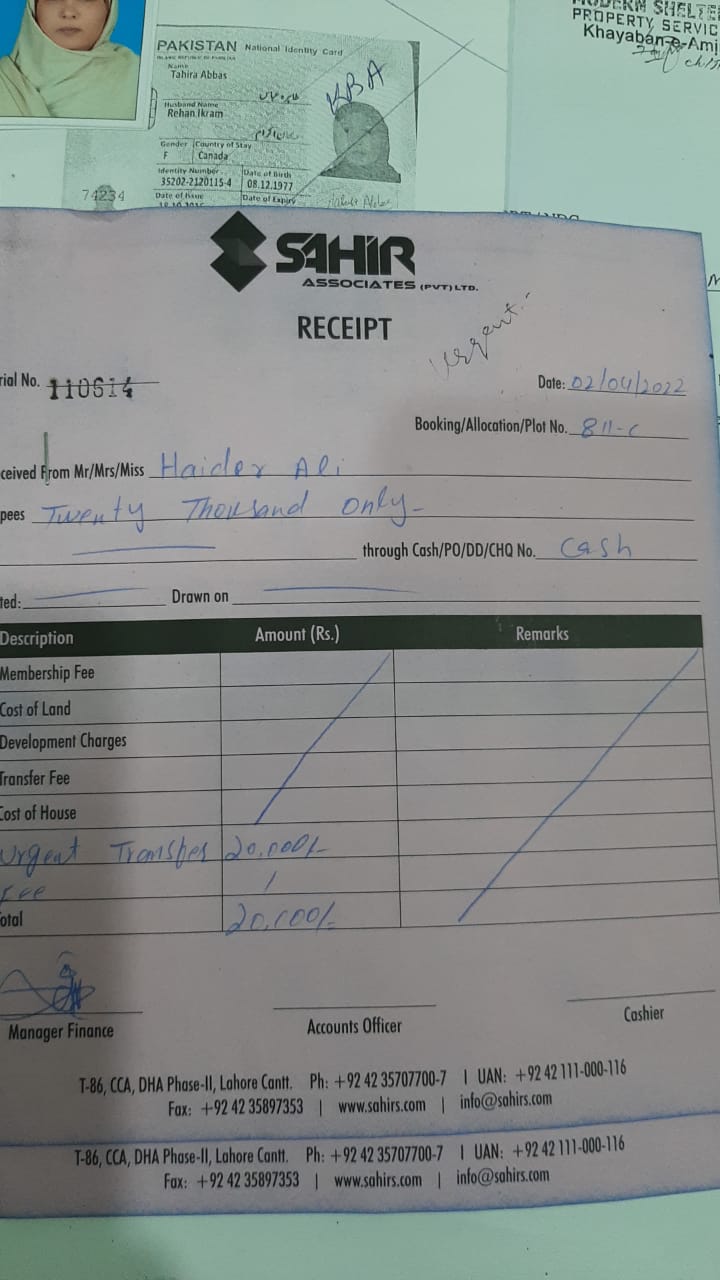 MODERN SHELTE
PROPERTY SERVIC
Khayaban-e-Amj
PAKISTAN National Identity Card
ISLAMIC REPUBLIC OF PAKISTAN
Name
Tahira Abbas
KBA
Husband Name
Rehan Ikram
Gender Country of Stay
F Canada
Identity Number Date of Birth
35202-2120115-4 08.12.1977
Date of Issue Date of Expiry
74234
SAHIR
ASSOCIATES (PVT) LTD.
RECEIPT
Urgent
rial No. 110614
Date: 02/04/2022
Booking/Allocation/Plot No. 811-C
ceived From Mr/Mrs/Miss Haider Ali
pees Twenty Thousand only
through Cash/PO/DD/CHQ No. Cash
ted: Drawn on
Description Amount (Rs.) Remarks
Membership Fee
Cost of Land
Development Charges
Transfer Fee
Cost of House
Urgent Transfer 20,000/-
Fee
otal 20,000/-
Manager Finance Accounts Officer Cashier
T-86, CCA, DHA Phase-II, Lahore Cantt. Ph: +92 42 35707700-7 | UAN: +92 42 111-000-116
Fax: +92 42 35897353 | www.sahirs.com | info@sahirs.com
T-86, CCA, DHA Phase-II, Lahore Cantt. Ph: +92 42 35707700-7 | UAN: +92 42 111-000-116
Fax: +92 42 35897353 | www.sahirs.com | info@sahirs.com